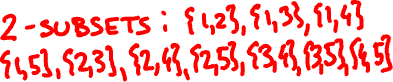 2-SUBSETS: {1,2},{1,3},{1,4}
{1,5},{2,3},{2,4},{2,5},{3,4},{3,5},{4,5}